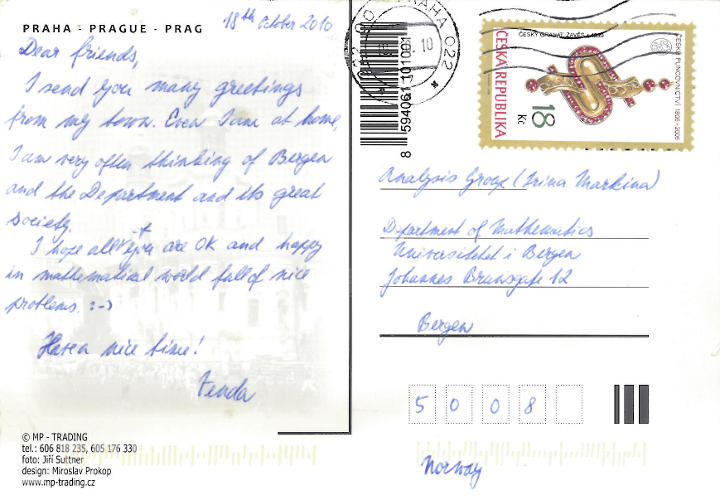 PRAHA - PRAGUE - PRAG
18th October 2010
Dear friends,
I send you many greetings
from my town. Even I am at home,
I am very often thinking of Bergen
and the Department and its great
society.
I hope all of you are OK and happy
in mathematical world full of nice
problems. :-)
Have a nice time!
Venda
© MP - TRADING
tel.: 606 818 235, 605 176 330
foto: Jiří Suttner
design: Miroslav Prokop
www.mp-trading.cz
8 594061 101001
PRAHA 022
ČESKÁ REPUBLIKA
ČESKÝ GRANÁT, ZÁVĚS
ČESKÉ PUNCOVNICTVÍ 1806 - 2006
18 Kč
Analysis Group (Irina Markina)
Department of Mathematics
Universitetet i Bergen
Johannes Brunsgate 12
Bergen
5 0 0 8
Norway